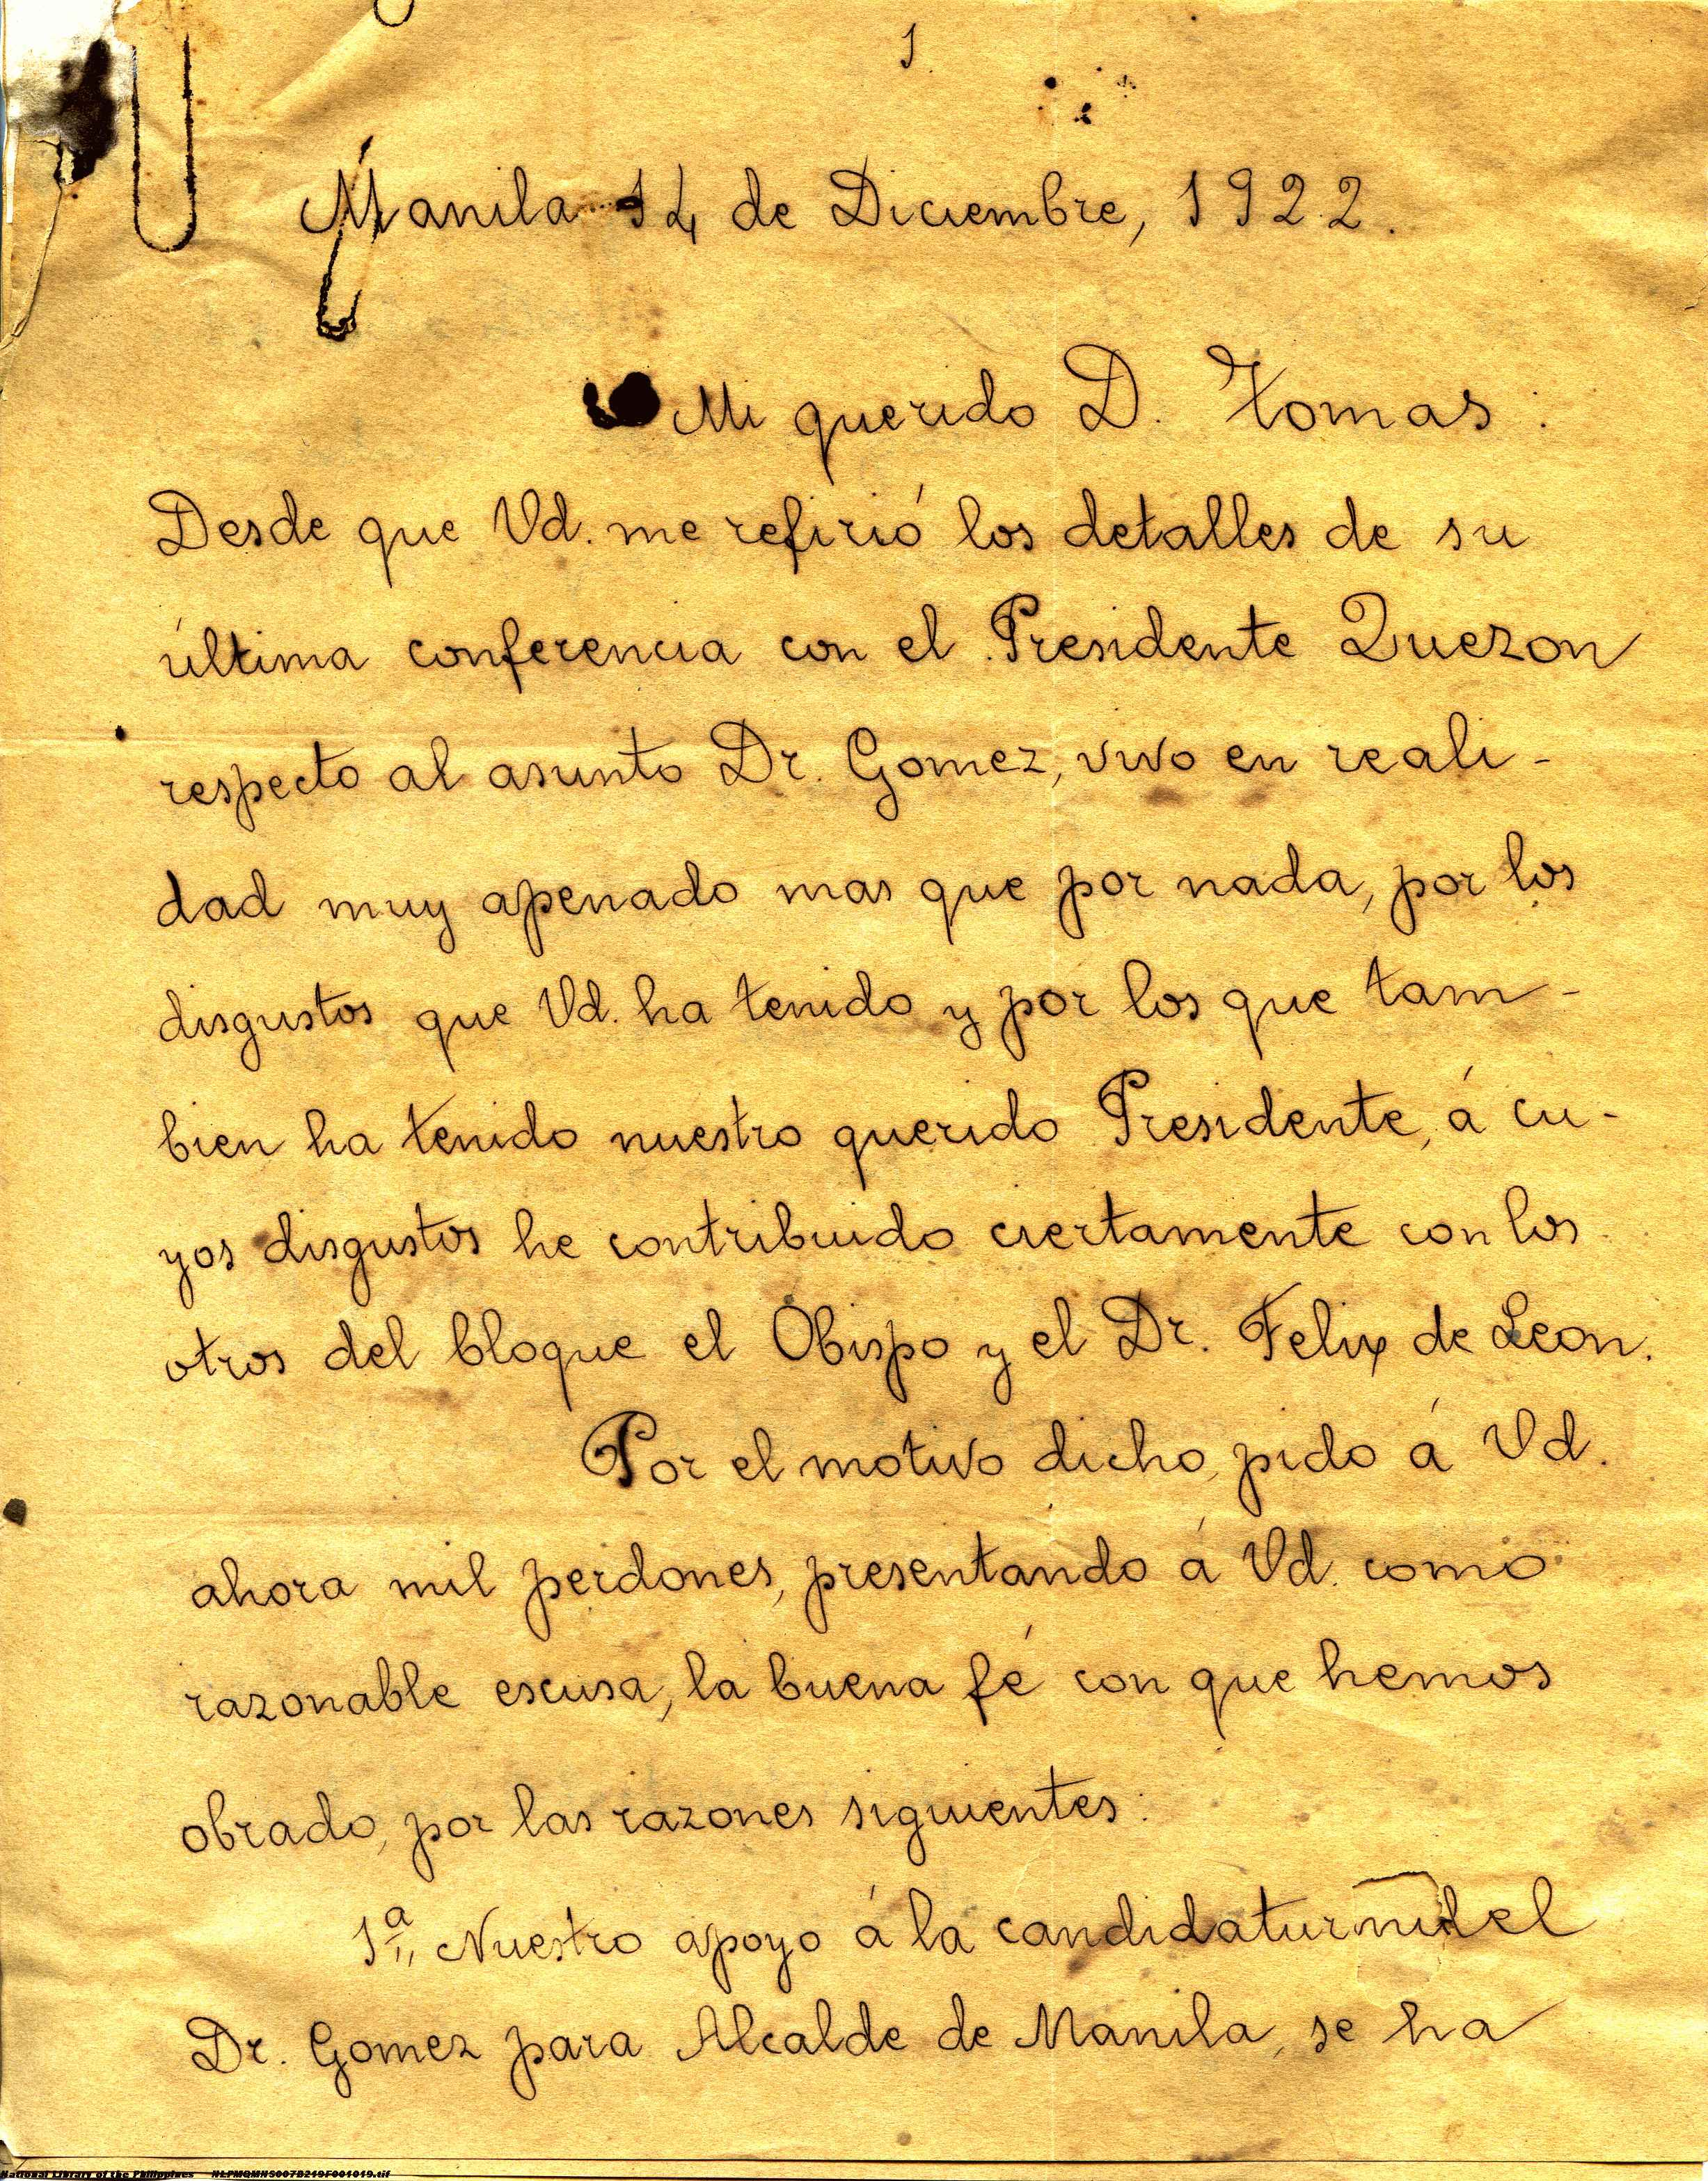 1.
Manila 14 de Diciembre, 1922.
Mi querido D. Tomas:
Desde que Vd. me refirió los detalles de su
última conferencia con el Presidente Quezon
respecto al asunto Dr. Gomez, vivo en reali-
dad muy apenado mas que por nada, por los
disgustos que Vd. ha tenido y por los que tam-
bien ha tenido nuestro querido Presidente, á cu-
yos disgustos he contribuido ciertamente con los
otros del bloque el Obispo y el Dr. Felix de Leon.
Por el motivo dicho, pido á Vd.
ahora mil perdones, presentando á Vd. como
razonable escusa, la buena fé con que hemos
obrado, por las razones siguientes:
1ª, Nuestro apoyo á la candidatura del
Dr. Gomez para Alcalde de Manila, se ha
National Library of the Philippines NLPMQMNS007B219F001019.tif